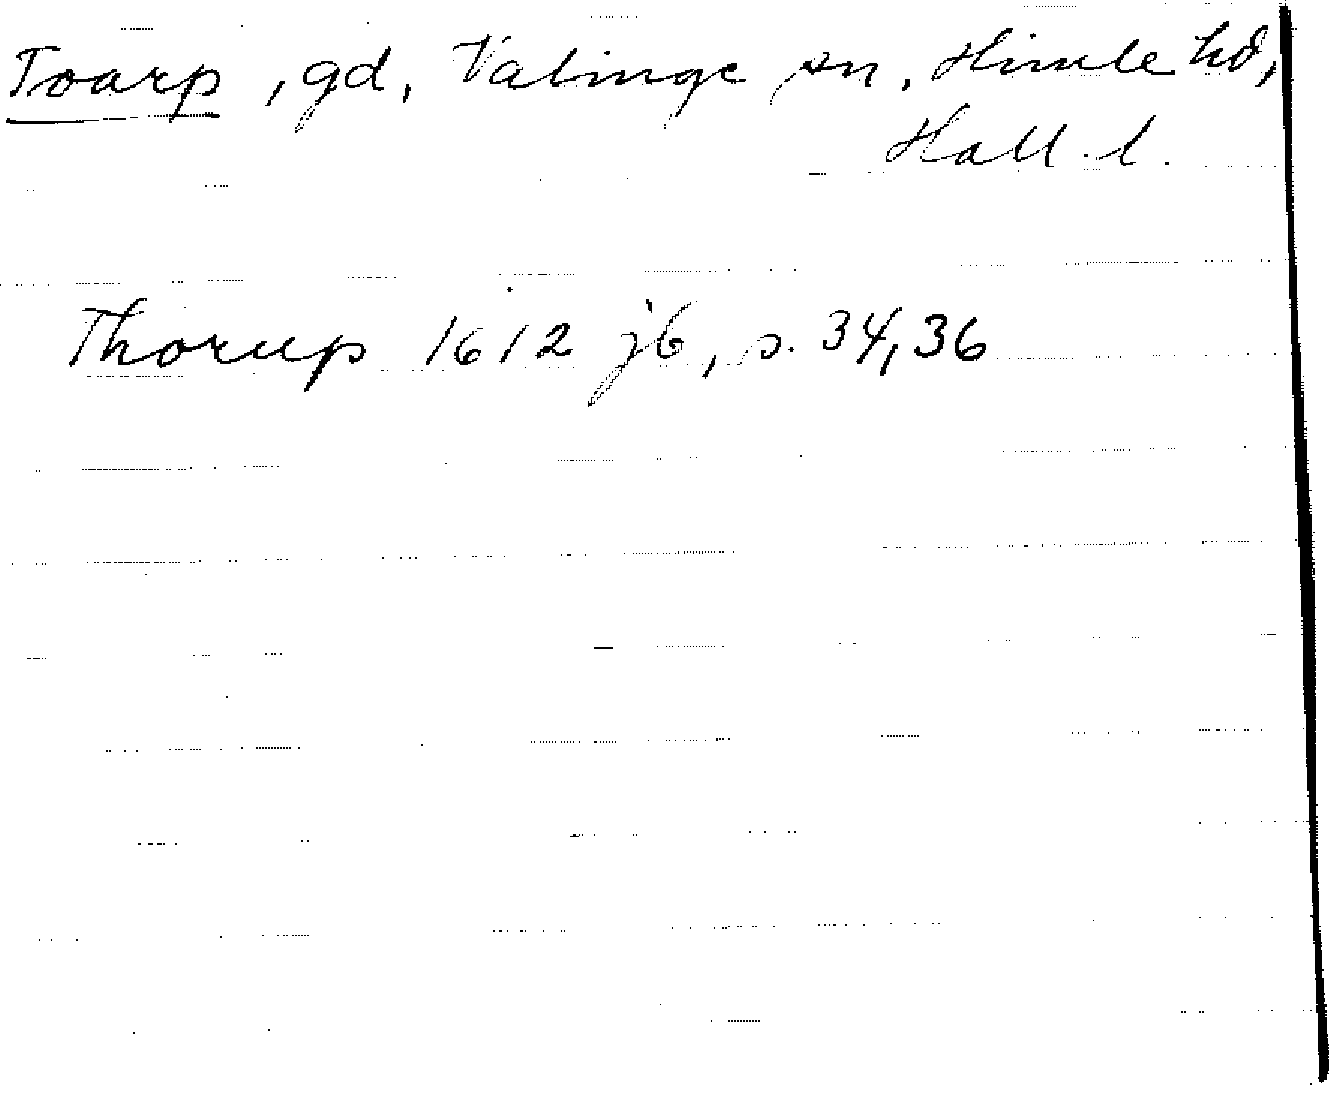 Toarp, gd, Valinge sn, Himle hd,
Hall. l.
Thorup 1612 jb, s. 34, 36